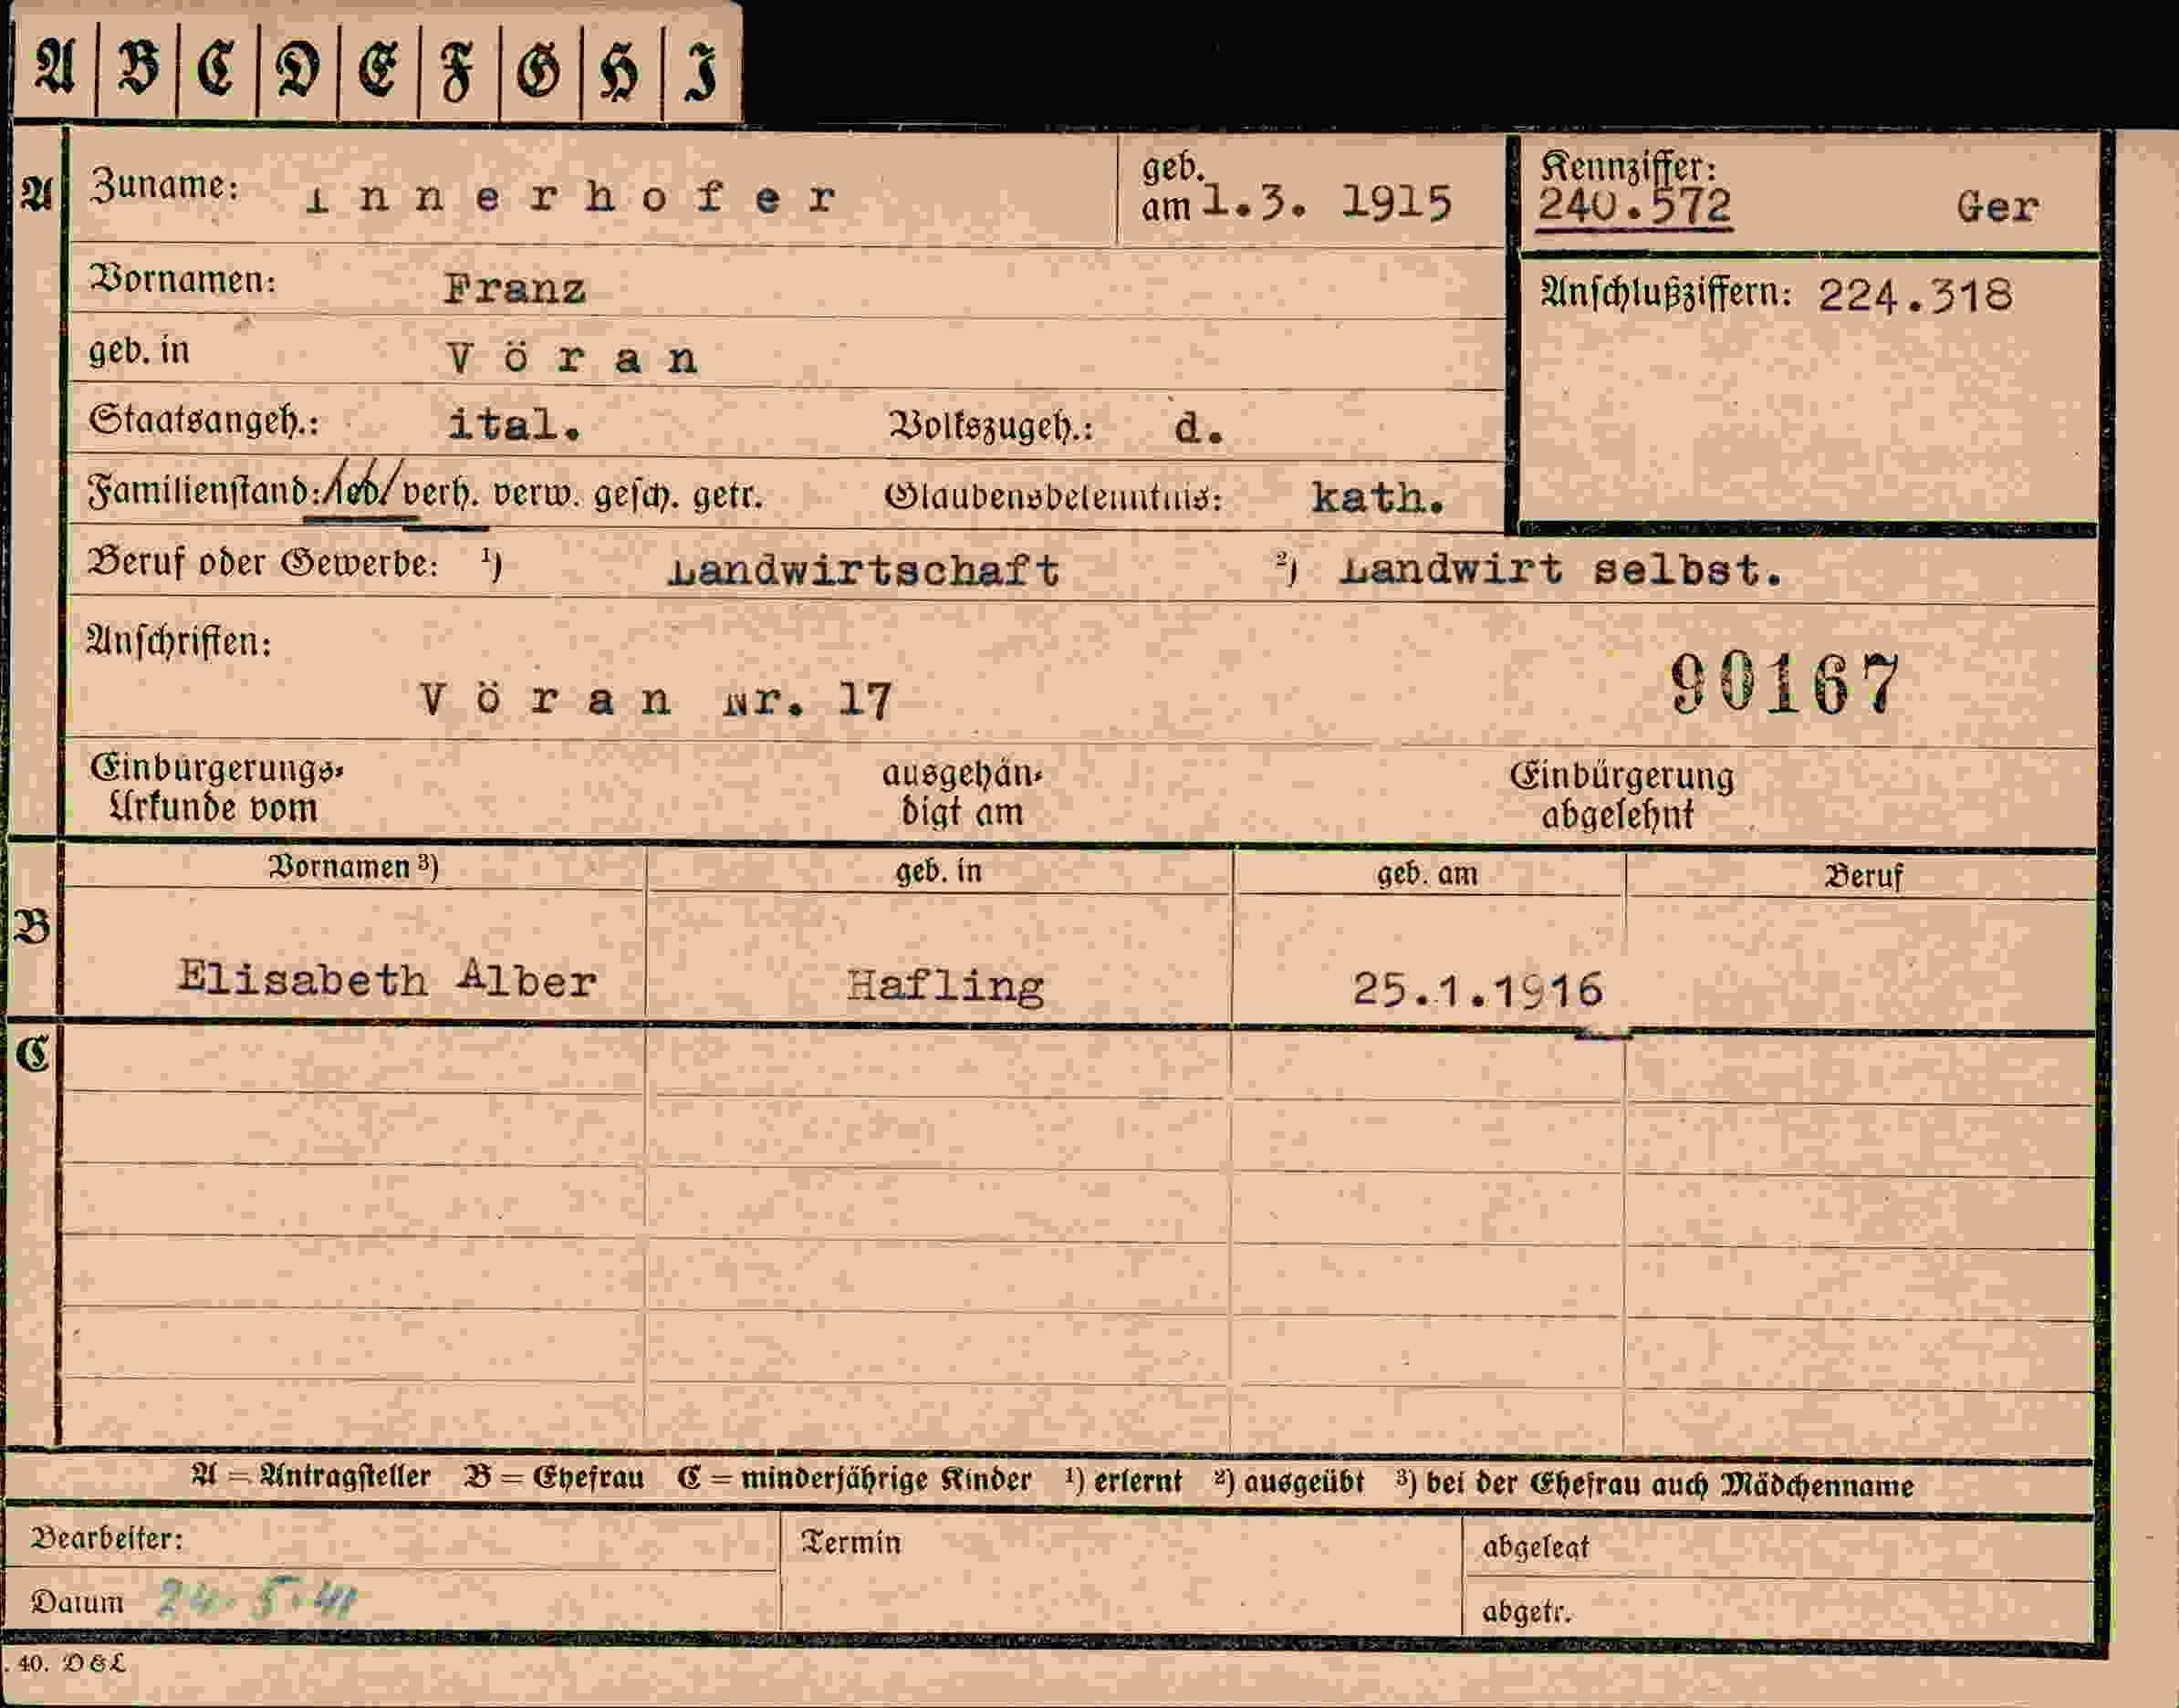 A B C D E F G H I
A Zuname: Innerhofer geb. am 1.3. 1915 Kennziffer: 240.572 Ger
Vornamen: Franz Anschlußziffern: 224.318
geb. in Vöran
Staatsangeh.: ital. Volkszugeh.: d.
Familienstand: led. verh. verw. gesch. getr. Glaubensbekenntnis: kath.
Beruf oder Gewerbe: ¹) Landwirtschaft ²) Landwirt selbst.
Anschriften:
Vöran Nr. 17 90167
Einbürgerungs- ausgehän- Einbürgerung
Urkunde vom digt am abgelehnt
Vornamen ³) geb. in geb. am Beruf
B
Elisabeth Alber Hafling 25.1.1916
C
A = Antragsteller B = Ehefrau C = minderjährige Kinder ¹) erlernt ²) ausgeübt ³) bei der Ehefrau auch Mädchenname
Bearbeiter: Termin abgelegt
Datum 24.5.41 abgetr.
. 40. DGL